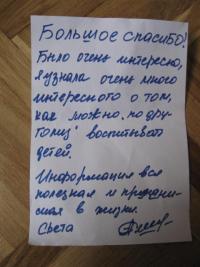 Большое спасибо!
Было очень интересно,
я узнала очень много
интересного о том,
как можно по дру-
гому воспитыват
детей.
Информация вся
полезная и
в жизни.
Света